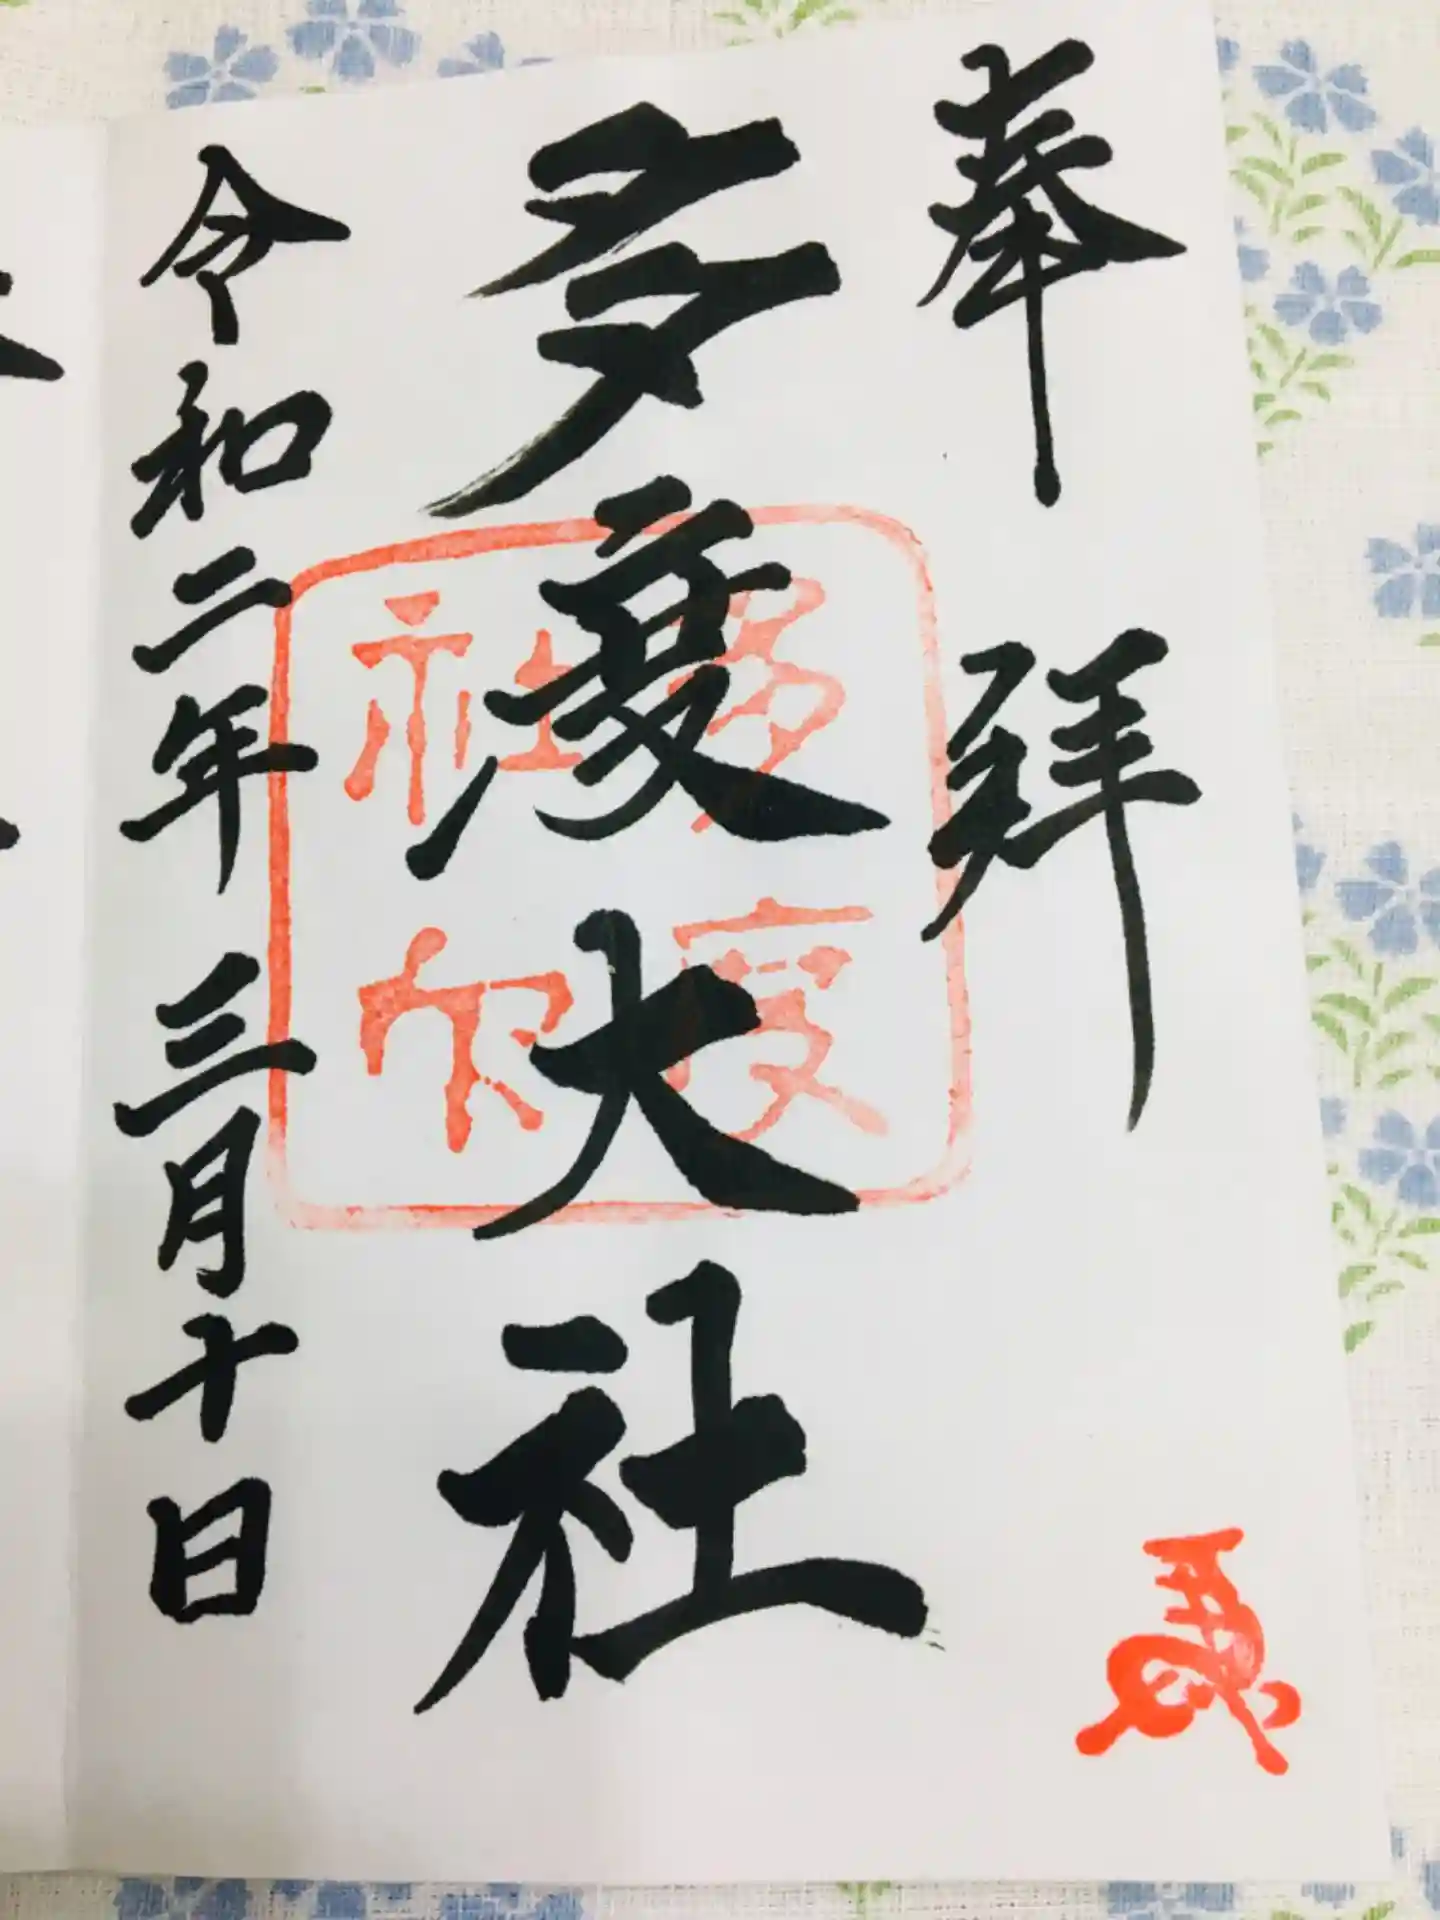 奉拝
多度大社
多度
社印
令和二年 三月十日